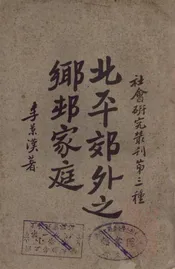 社會研究叢刊第三種
北平郊外之
鄉村家庭
李景漢著